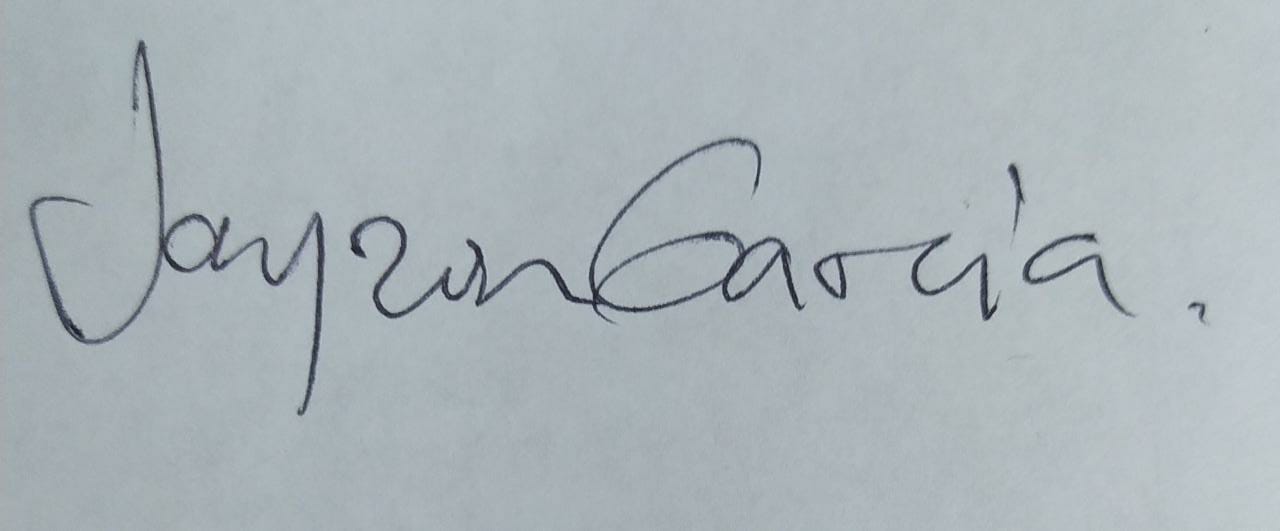 Jayzon García.